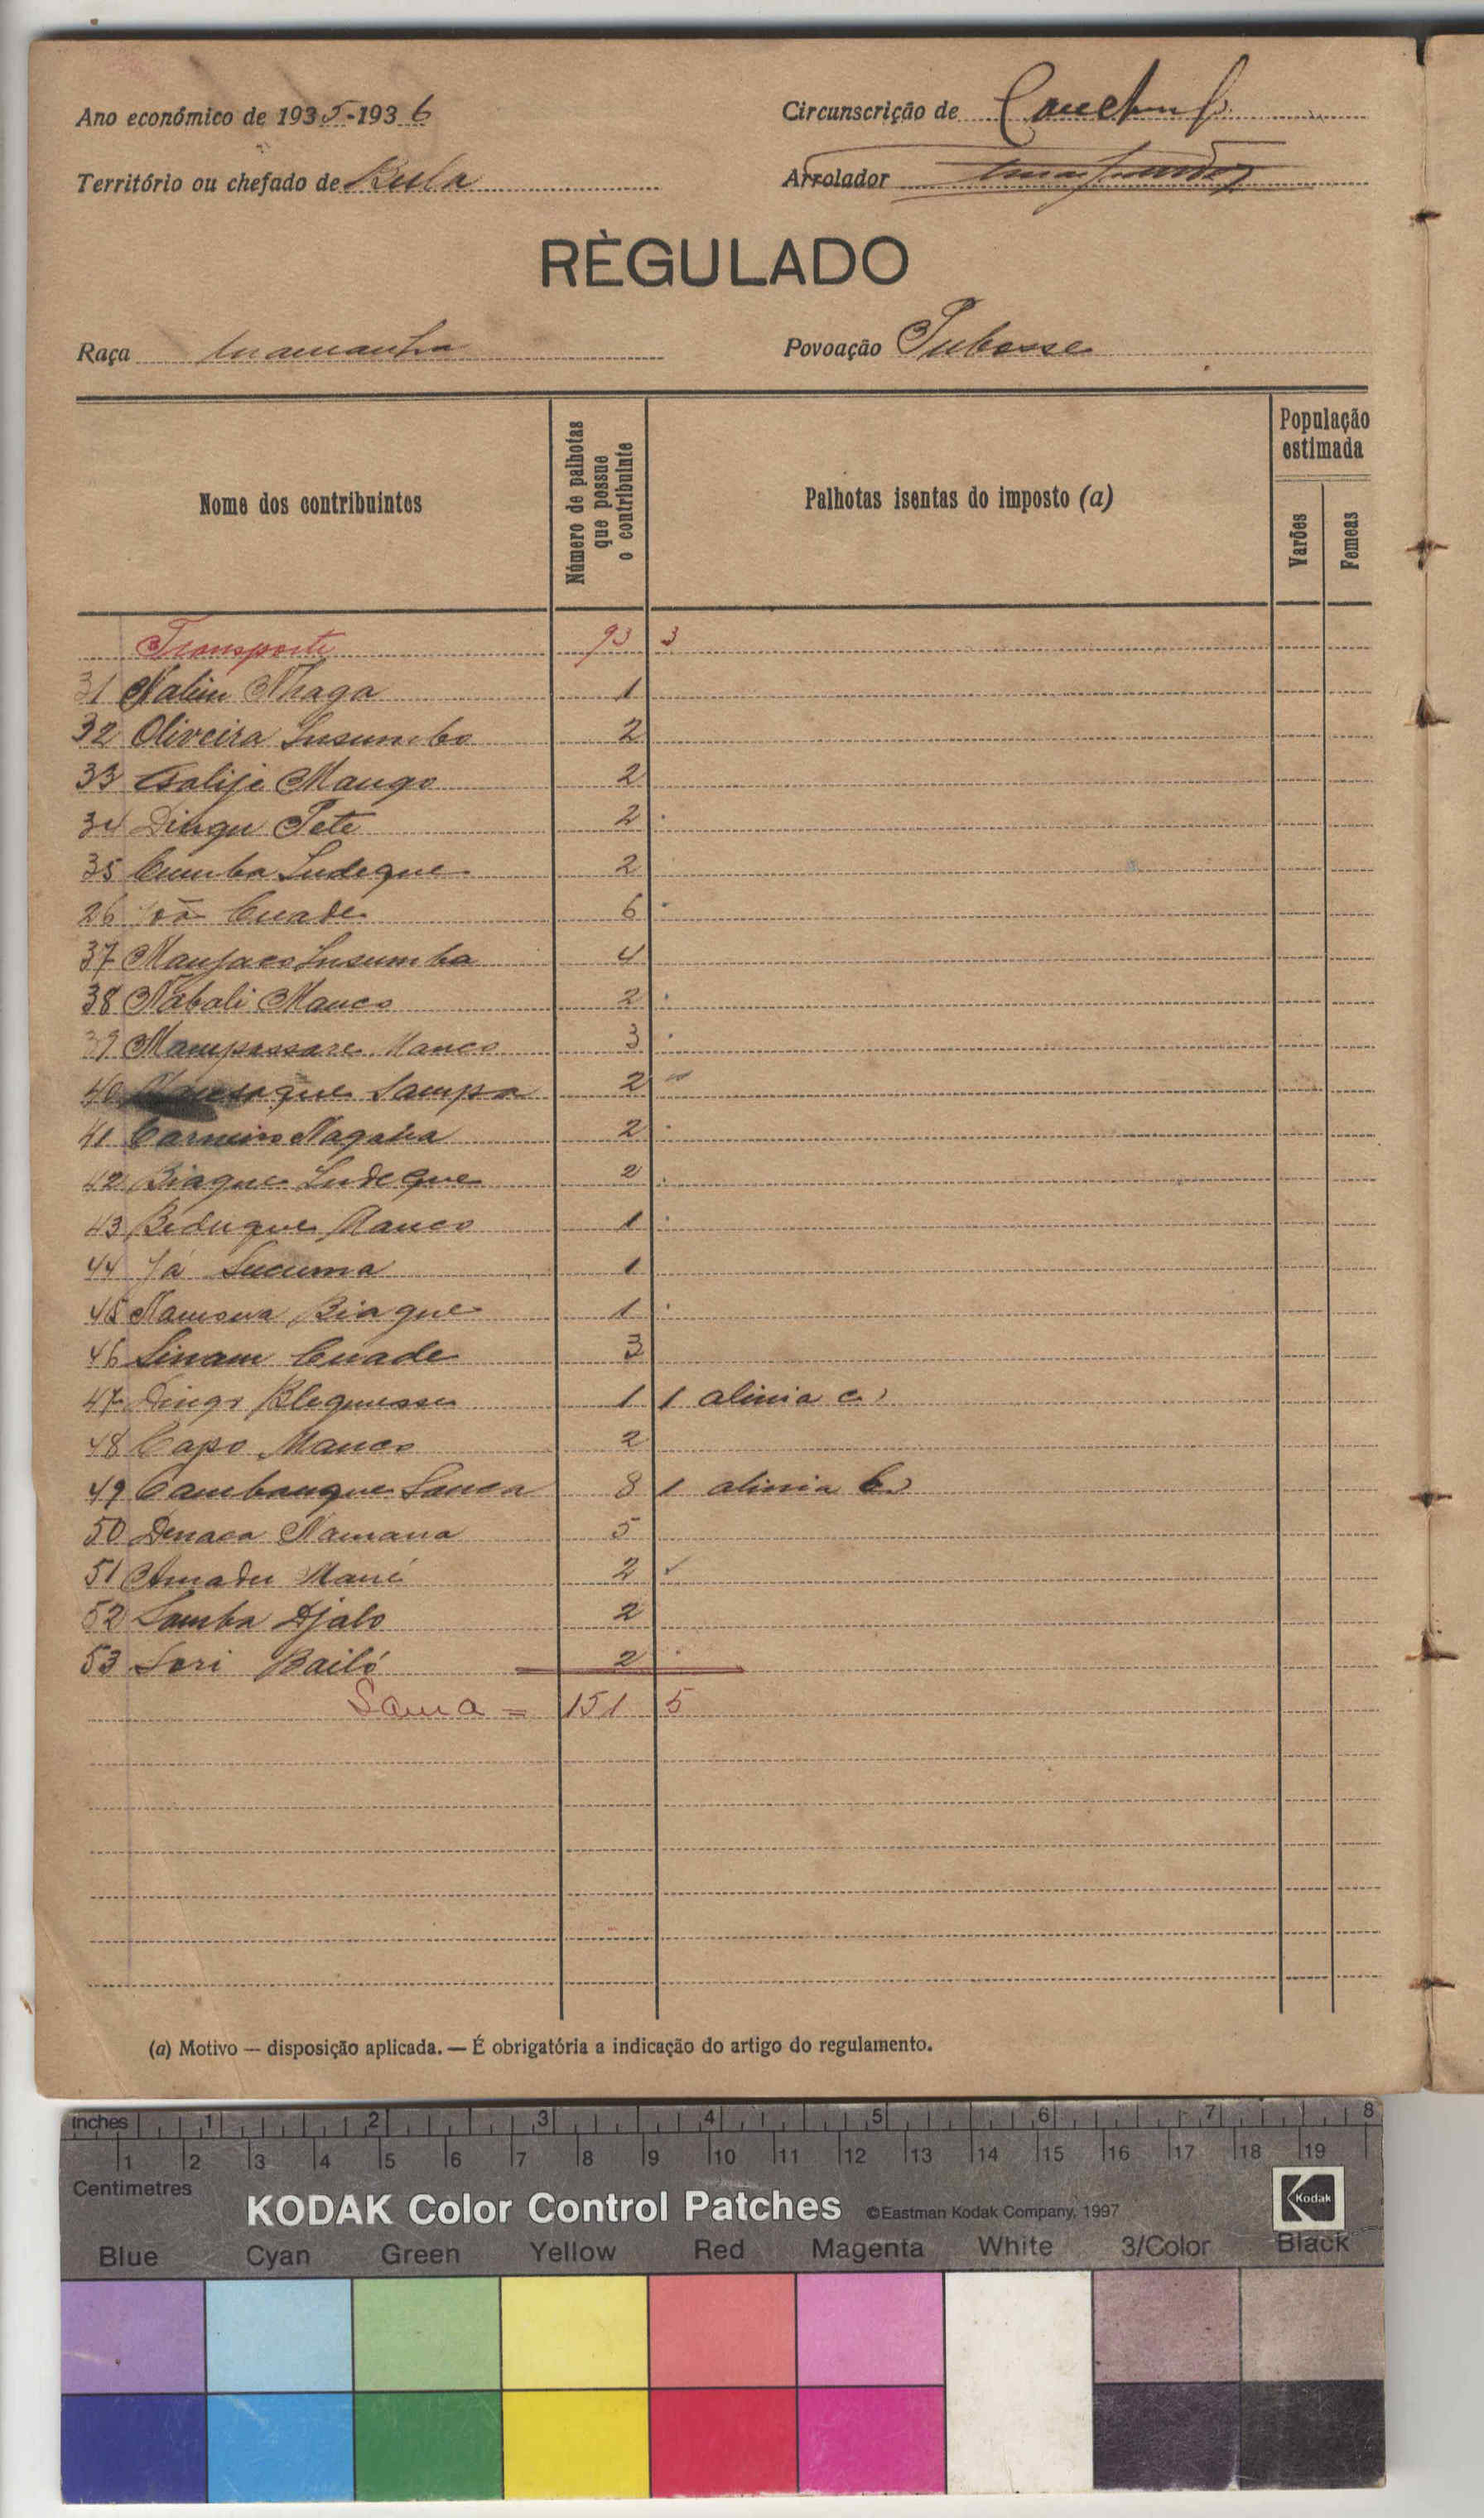 Ano económico de 1935-1936
Circunscrição de
Território ou chefado de Kula
Arrolador
RÈGULADO
Raça
Povoação Tubosse
Nome dos contribuintes
Número de palhotas que possue o contribuinte
Palhotas isentas do imposto (a)
População estimada
Varões
Femeas
Transporte 93 3
31 Nalim Nhaga 1
32 Oliveira Insumbo 2
33 Mango 2
34 Dingu Pete 2
35 Cumba Indeque 2
26 Cuade 6
37 Manjaco Insumba 4
38 Nabali Manco 2
39 Mampassare Manco 3
40 Sampa 2
41 Carneiro Nagaba 2
42 Biaque Indeque 2
43 Biduque Manco 1
44 Já 1
45 Namona Biaque 1
46 Sinam Cuade 3
47 Dingo 1 1 alinia c)
48 Capo Manco 2
49 Cambanque Sanca 8 1 alinia b)
50 Denaca Namana 5
51 Amadu Mané 2
52 Samba Djalo 2
53 Sori Bailó 2
Soma = 151 5
(a) Motivo — disposição aplicada. — É obrigatória a indicação do artigo do regulamento.
inches 1 2 3 4 5 6 7 8
1 2 3 4 5 6 7 8 9 10 11 12 13 14 15 16 17 18 19
Centimetres
KODAK Color Control Patches ©Eastman Kodak Company, 1997
Kodak
Blue Cyan Green Yellow Red Magenta White 3/Color Black